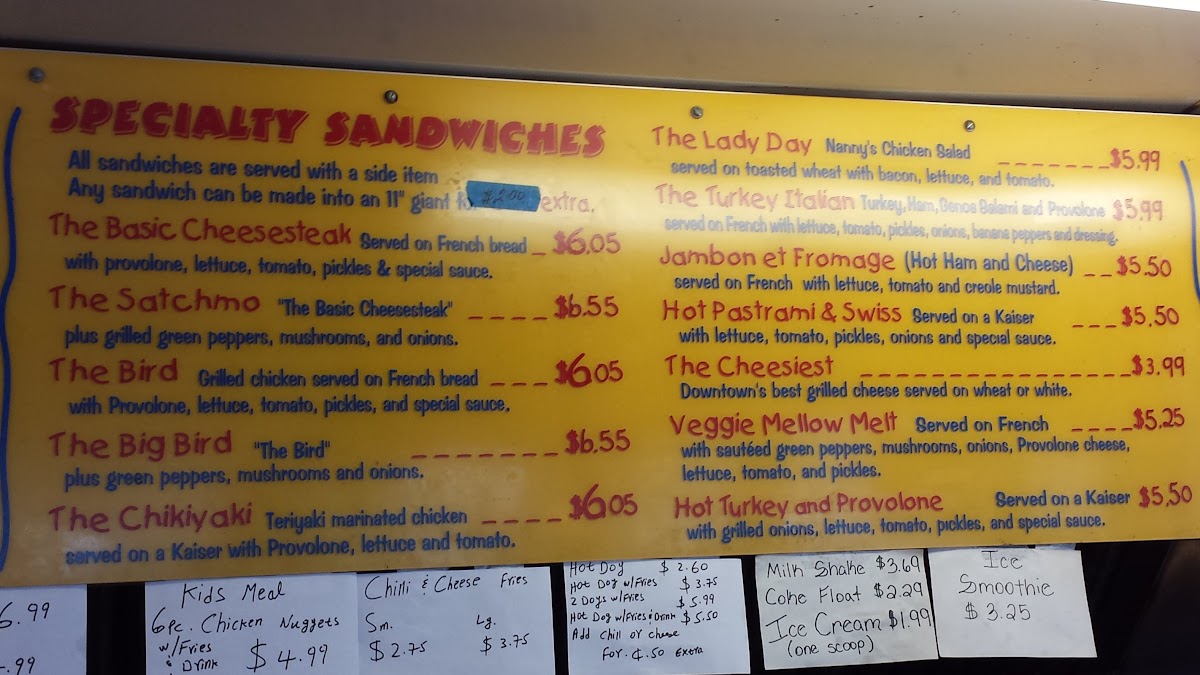 SPECIALTY SANDWICHES
All sandwiches are served with a side item
Any sandwich can be made into an 11" giant for extra.
The Basic Cheesesteak Served on French bread _ $6.05
with provolone, lettuce, tomato, pickles & special sauce.
The Satchmo "The Basic Cheesesteak" _ _ _ _ $6.55
plus grilled green peppers, mushrooms, and onions.
The Bird Grilled chicken served on French bread _ _ _ $6.05
with Provolone, lettuce, tomato, pickles, and special sauce.
The Big Bird "The Bird" _ _ _ _ _ _ _ $6.55
plus green peppers, mushrooms and onions.
The Chikiyaki Teriyaki marinated chicken _ _ _ _ $6.05
served on a Kaiser with Provolone, lettuce and tomato.
The Lady Day Nanny's Chicken Salad _ _ _ _ _ _ _ $5.99
served on toasted wheat with bacon, lettuce, and tomato.
The Turkey Italian Turkey, Ham, Genoa Salami and Provolone $5.99
served on French with lettuce, tomato, pickles, onions, banana peppers and dressing.
Jambon et Fromage (Hot Ham and Cheese) _ _ $5.50
served on French with lettuce, tomato and creole mustard.
Hot Pastrami & Swiss Served on a Kaiser _ _ _ $5.50
with lettuce, tomato, pickles, onions and special sauce.
The Cheesiest _ _ _ _ _ _ _ _ _ _ _ _ _ _ _ _ $3.99
Downtown's best grilled cheese served on wheat or white.
Veggie Mellow Melt Served on French _ _ _ _ $5.25
with sautéed green peppers, mushrooms, onions, Provolone cheese,
lettuce, tomato, and pickles.
Hot Turkey and Provolone Served on a Kaiser $5.50
with grilled onions, lettuce, tomato, pickles, and special sauce.
6.99
.99
Kids Meal
6pc. Chicken Nuggets
w/Fries
& Drink $4.99
Chilli & Cheese Fries
Sm. Lg.
$2.75 $3.75
Hot Dog $2.60
Hot Dog w/Fries $3.75
2 Dogs w/Fries $5.99
Hot Dog w/Fries & Drink $5.50
Add chili or cheese
For .50 Extra
Milk Shake $3.69
Coke Float $2.29
Ice Cream $1.99
(one scoop)
Ice
Smoothie
$3.25